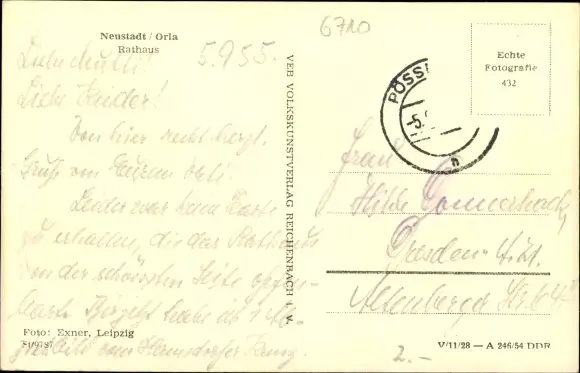 Neustadt / Orla
Rathaus
5.9.55.
6710
Liebe Mutti!
Liebe Kinder!
Von hier recht herzl.
Gruß von Eurem Vati.
Leider war keine Karte
zu erhalten, die das Rathaus
von der schönsten Seite
Bis jetzt habe ich
Foto: Exner, Leipzig
VEB VOLKSKUNSTVERLAG REICHENBACH i. V.
Echte
Fotografie
432
PÖSS
5.
n
Frau
Hilde
Dresden
Altenberger Str.
2.-
V/11/28 — A 246/54 DDR